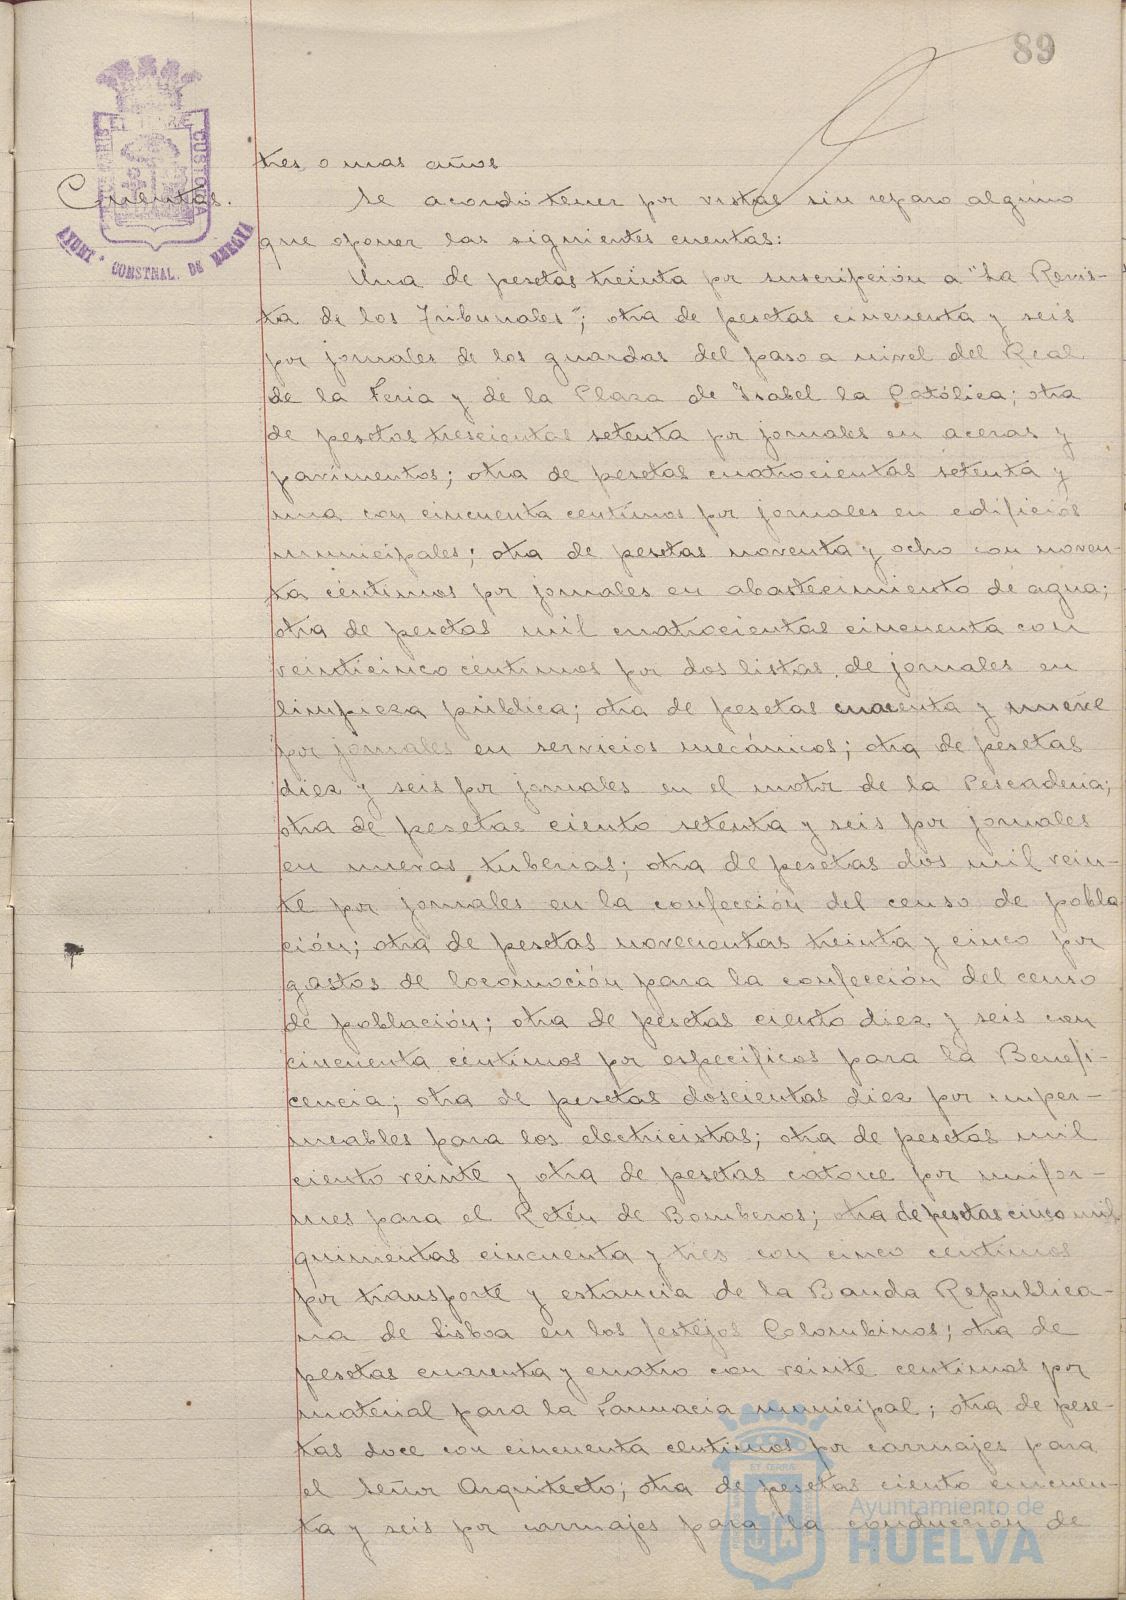 89
tres o mas años
Cuentas.
Se acordó tener por vistas sin reparo alguno
que oponer las siguientes cuentas:
Una de pesetas treinta por suscripción a "La Revis-
ta de los Tribunales"; otra de pesetas cincuenta y seis
por jornales de los guardas del paso a nivel del Real
de la Feria y de la Plaza de Isabel la Católica; otra
de pesetas trescientas setenta por jornales en aceras y
pavimentos; otra de pesetas cuatrocientas setenta y
una con cincuenta centimos por jornales en edificios
municipales; otra de pesetas noventa y ocho con noven-
ta céntimos por jornales en abastecimiento de agua;
otra de pesetas mil cuatrocientas cincuenta con
veinticinco céntimos por dos listas de jornales en
limpieza pública; otra de pesetas cuarenta y nueve
por jornales en servicios mecánicos; otra de pesetas
diez y seis por jornales en el motor de la Pescaderia;
otra de pesetas ciento setenta y seis por jornales
en nuevas tuberias; otra de pesetas dos mil vein-
te por jornales en la confección del censo de pobla
ción; otra de pesetas novecientas treinta y cinco por
gastos de locomoción para la confección del censo
de población; otra de pesetas ciento diez y seis con
cincuenta céntimos por especificos para la Benefi-
cencia; otra de pesetas doscientas diez por imper-
meables para los electricistas; otra de pesetas mil
ciento veinte y otra de pesetas catorce por unifor-
mes para el Retén de Bomberos; otra de pesetas cinco mil
quinientas cincuenta y tres con cinco centimos
por transporte y estancia de la Banda Republica-
na de Lisboa en los festejos Colombinos; otra de
pesetas cuarenta y cuatro con veinte centimos por
material para la Farmacia municipal; otra de pese-
tas doce con cincuenta centimos por carruajes para
el Señor Arquitecto; otra de pesetas ciento cincuen-
ta y seis por carruajes para la conducción de
AYUNT° CONSTNAL. DE HUELVA
Ayuntamiento de
HUELVA